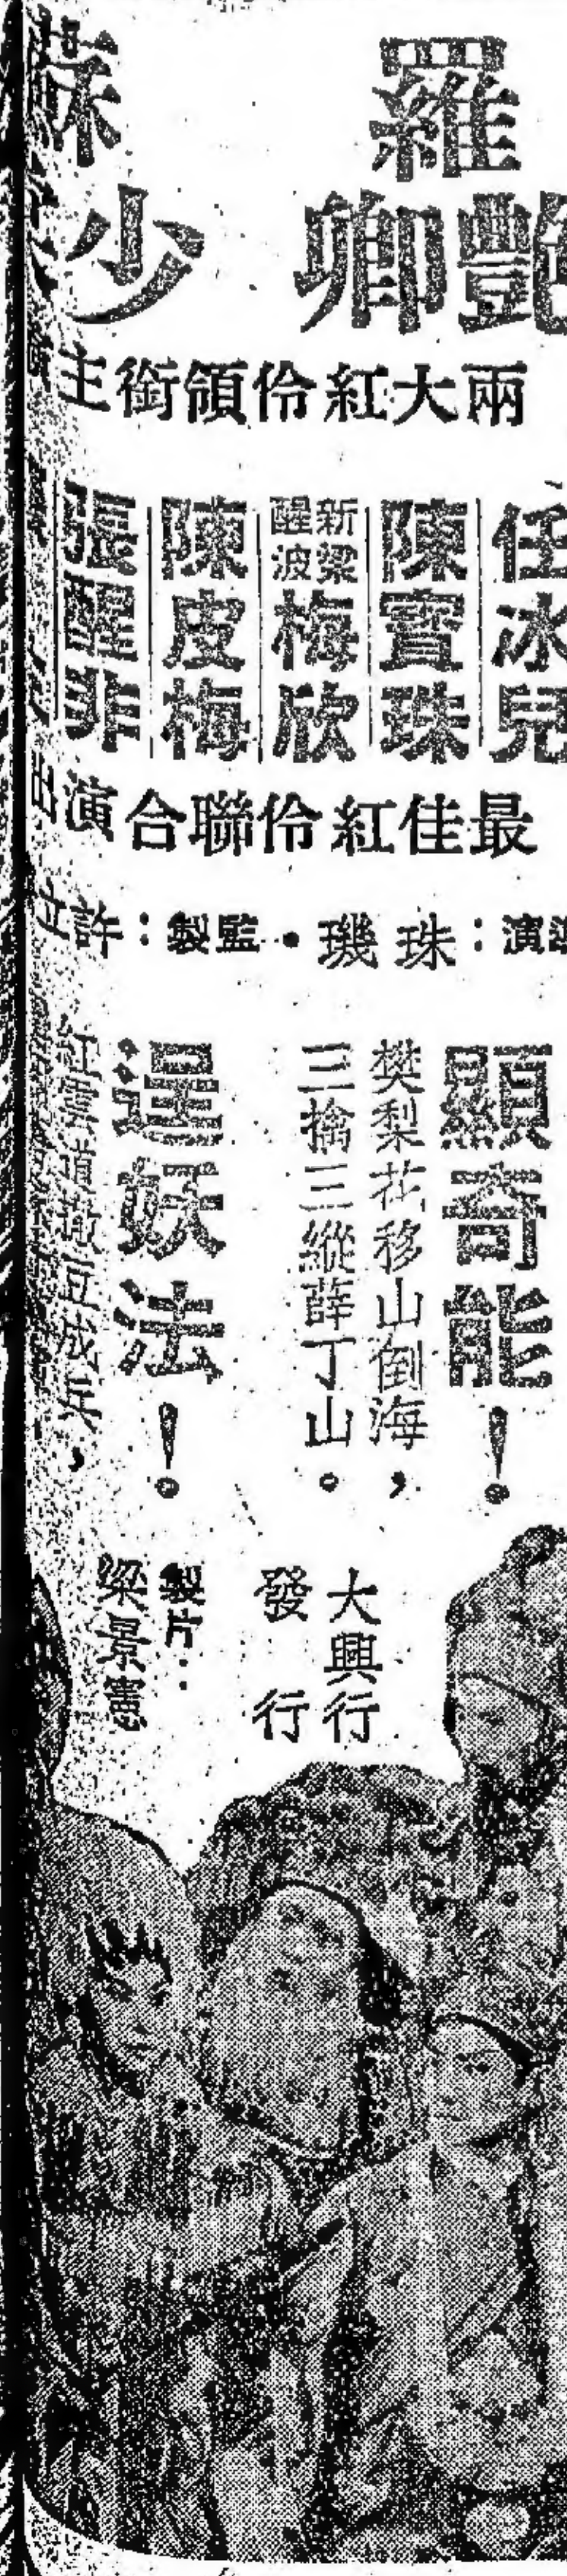 羅艷卿
蘇少
兩大紅伶領銜主
任冰兒
陳寶珠
新梁醒波
梅欣
陳皮梅
張醒非
最佳紅伶聯合演出
演：珠璣・監製：許立
顯奇能！
樊梨花移山倒海，
三擒三縱薛丁山。
逞妖法！
紅雲道撒豆成兵，
大興行
發行
製片：
梁景憲